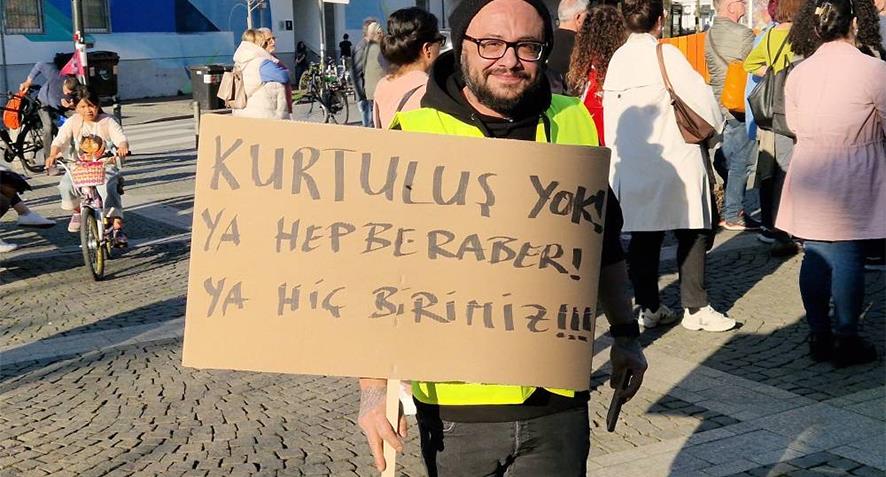 KURTULUŞ YOK!
YA HEPBERABER!
YA HiÇ BiRiMiZ!!!